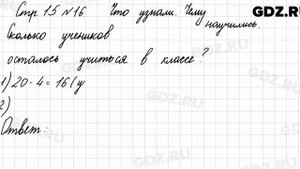 Стр. 15 №16. Что узнали. Чему
научились.
Сколько учеников
осталось учиться в классе?
1) 20-4=16(у
2)
Ответ:
GDZ.RU
GDZ.RU
GDZ.RU